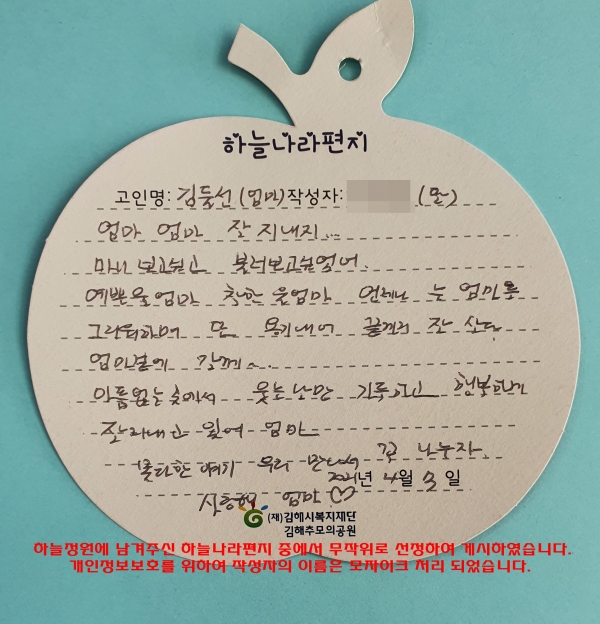 하늘나라편지
고인명: 김둘선 (엄마) 작성자: (딸)
엄마 엄마 잘 지내지...
마니 보고싶고 불러보고싶엇어.
예쁜울엄마 착한 울엄마 언제나 늘 엄마를
그리워하며 딸 용기내어 끝까지 잘 살다
엄마곁에 갈께~.
아픔없는 곳에서 웃는 날만 기록하고 행복하게
잘지내고 잇어 엄마
못다한 얘기 우리 만나서 꼭 나누자.
2021년 4월 3일
사랑해 엄마 ♡
(재)김해시복지재단
김해추모의공원
하늘정원에 남겨주신 하늘나라편지 중에서 무작위로 선정하여 게시하였습니다.
개인정보보호를 위하여 작성자의 이름은 모자이크 처리 되었습니다.